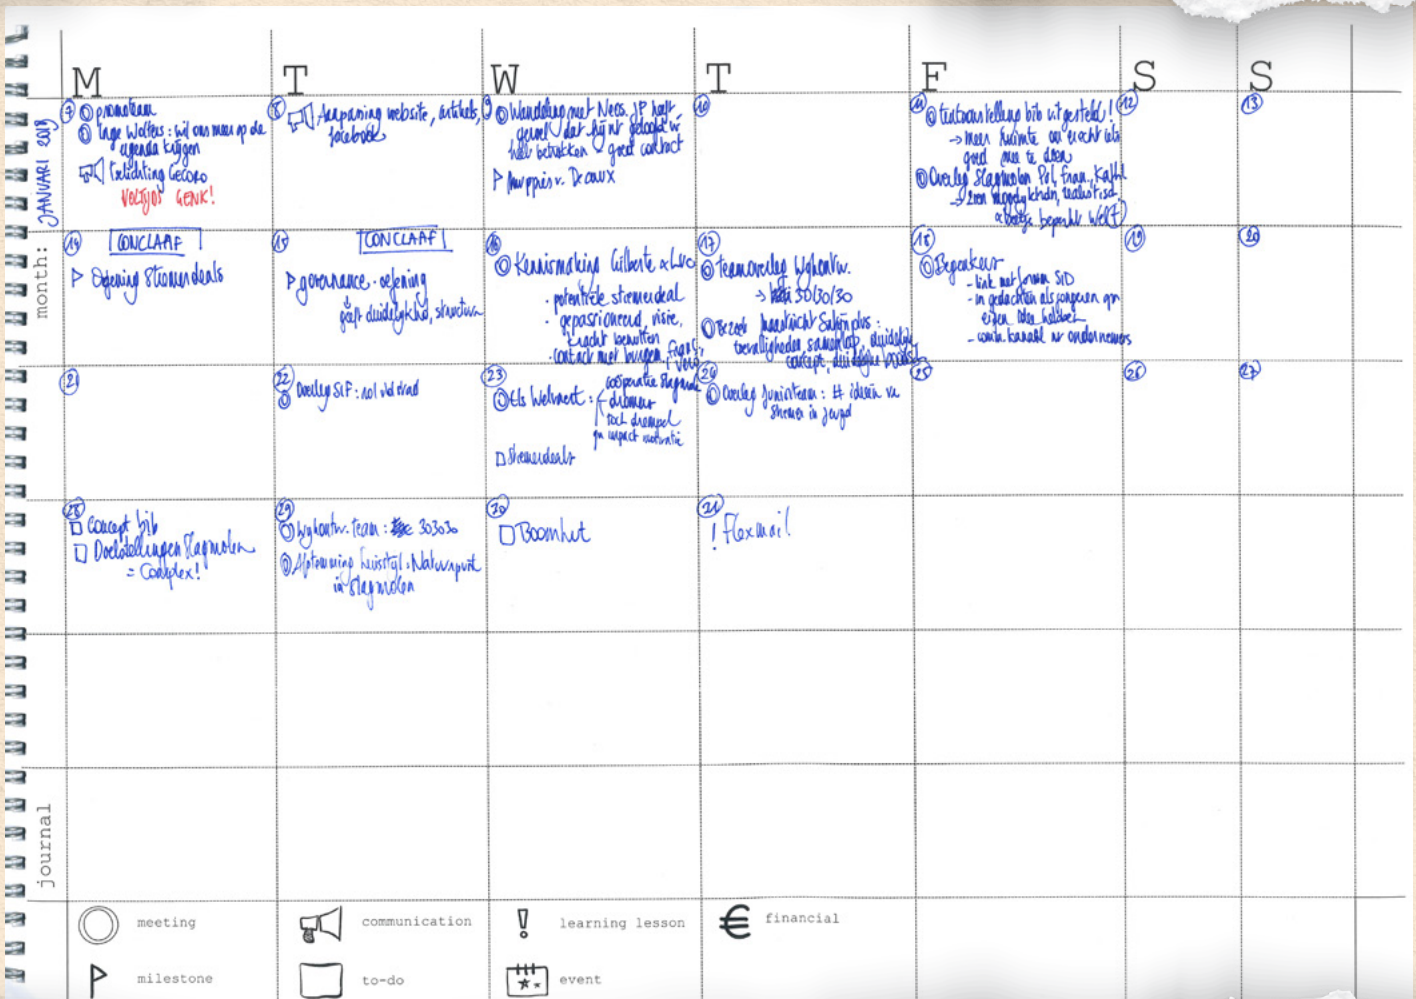 M T W T F S S
month: JANUARI 2019
7
promoteam
Inge Wolters: wil ons meer op de
agenda krijgen
Toelichting Gecoro
VOLTIJDS GENK!
8
Aanpassing website, artikels,
facebook
9
Wandeling met Nees. JP heeft
gevoel dat hij nt gelooft w
heel betrokken - goed contact
10
11
Tentoonstelling bib uitgesteld!
→ meer ruimte om
goed mee te doen
Overleg Slagmolen Pol, Fran,
→ realistisch
12
13
14
CONCLAAF
Opening Stiemerdeals
15
CONCLAAF
governance-oefening
geeft duidelijkheid, structuur
16
Kennismaking Gilberte
· potentiële stiemerdeal
· gepassioneerd, visie,
kracht benutten
· contact met burgem.
17
Teamoverleg Wijkontw.
→ 30/30/30
Bezoek Maastricht
toevalligheden, samenloop, duidelijk
concept, duidelijke
18
- link met forum SID
- in gedachten als jongeren gn
eigen idee hebben
- comm. kanaal nr ondernemers
19
20
21
22
Overleg SIF: rol vd stad
23
Els Welvaert:
coöperatie Slagmolen
drempel
gn impact motivatie
Stiemerdeals
24
Overleg Juniorteam: # ideeën va
Stiemer in jeugd
25
26
27
28
Concept bib
Doelstellingen Slagmolen
= Complex!
29
Wijkontw. team: 303030
Afstemming huisstijl. Natuurpunt
in Slagmolen
30
Boomhut
! Flexmail
journal
meeting
communication
learning lesson
€ financial
milestone
to-do
event